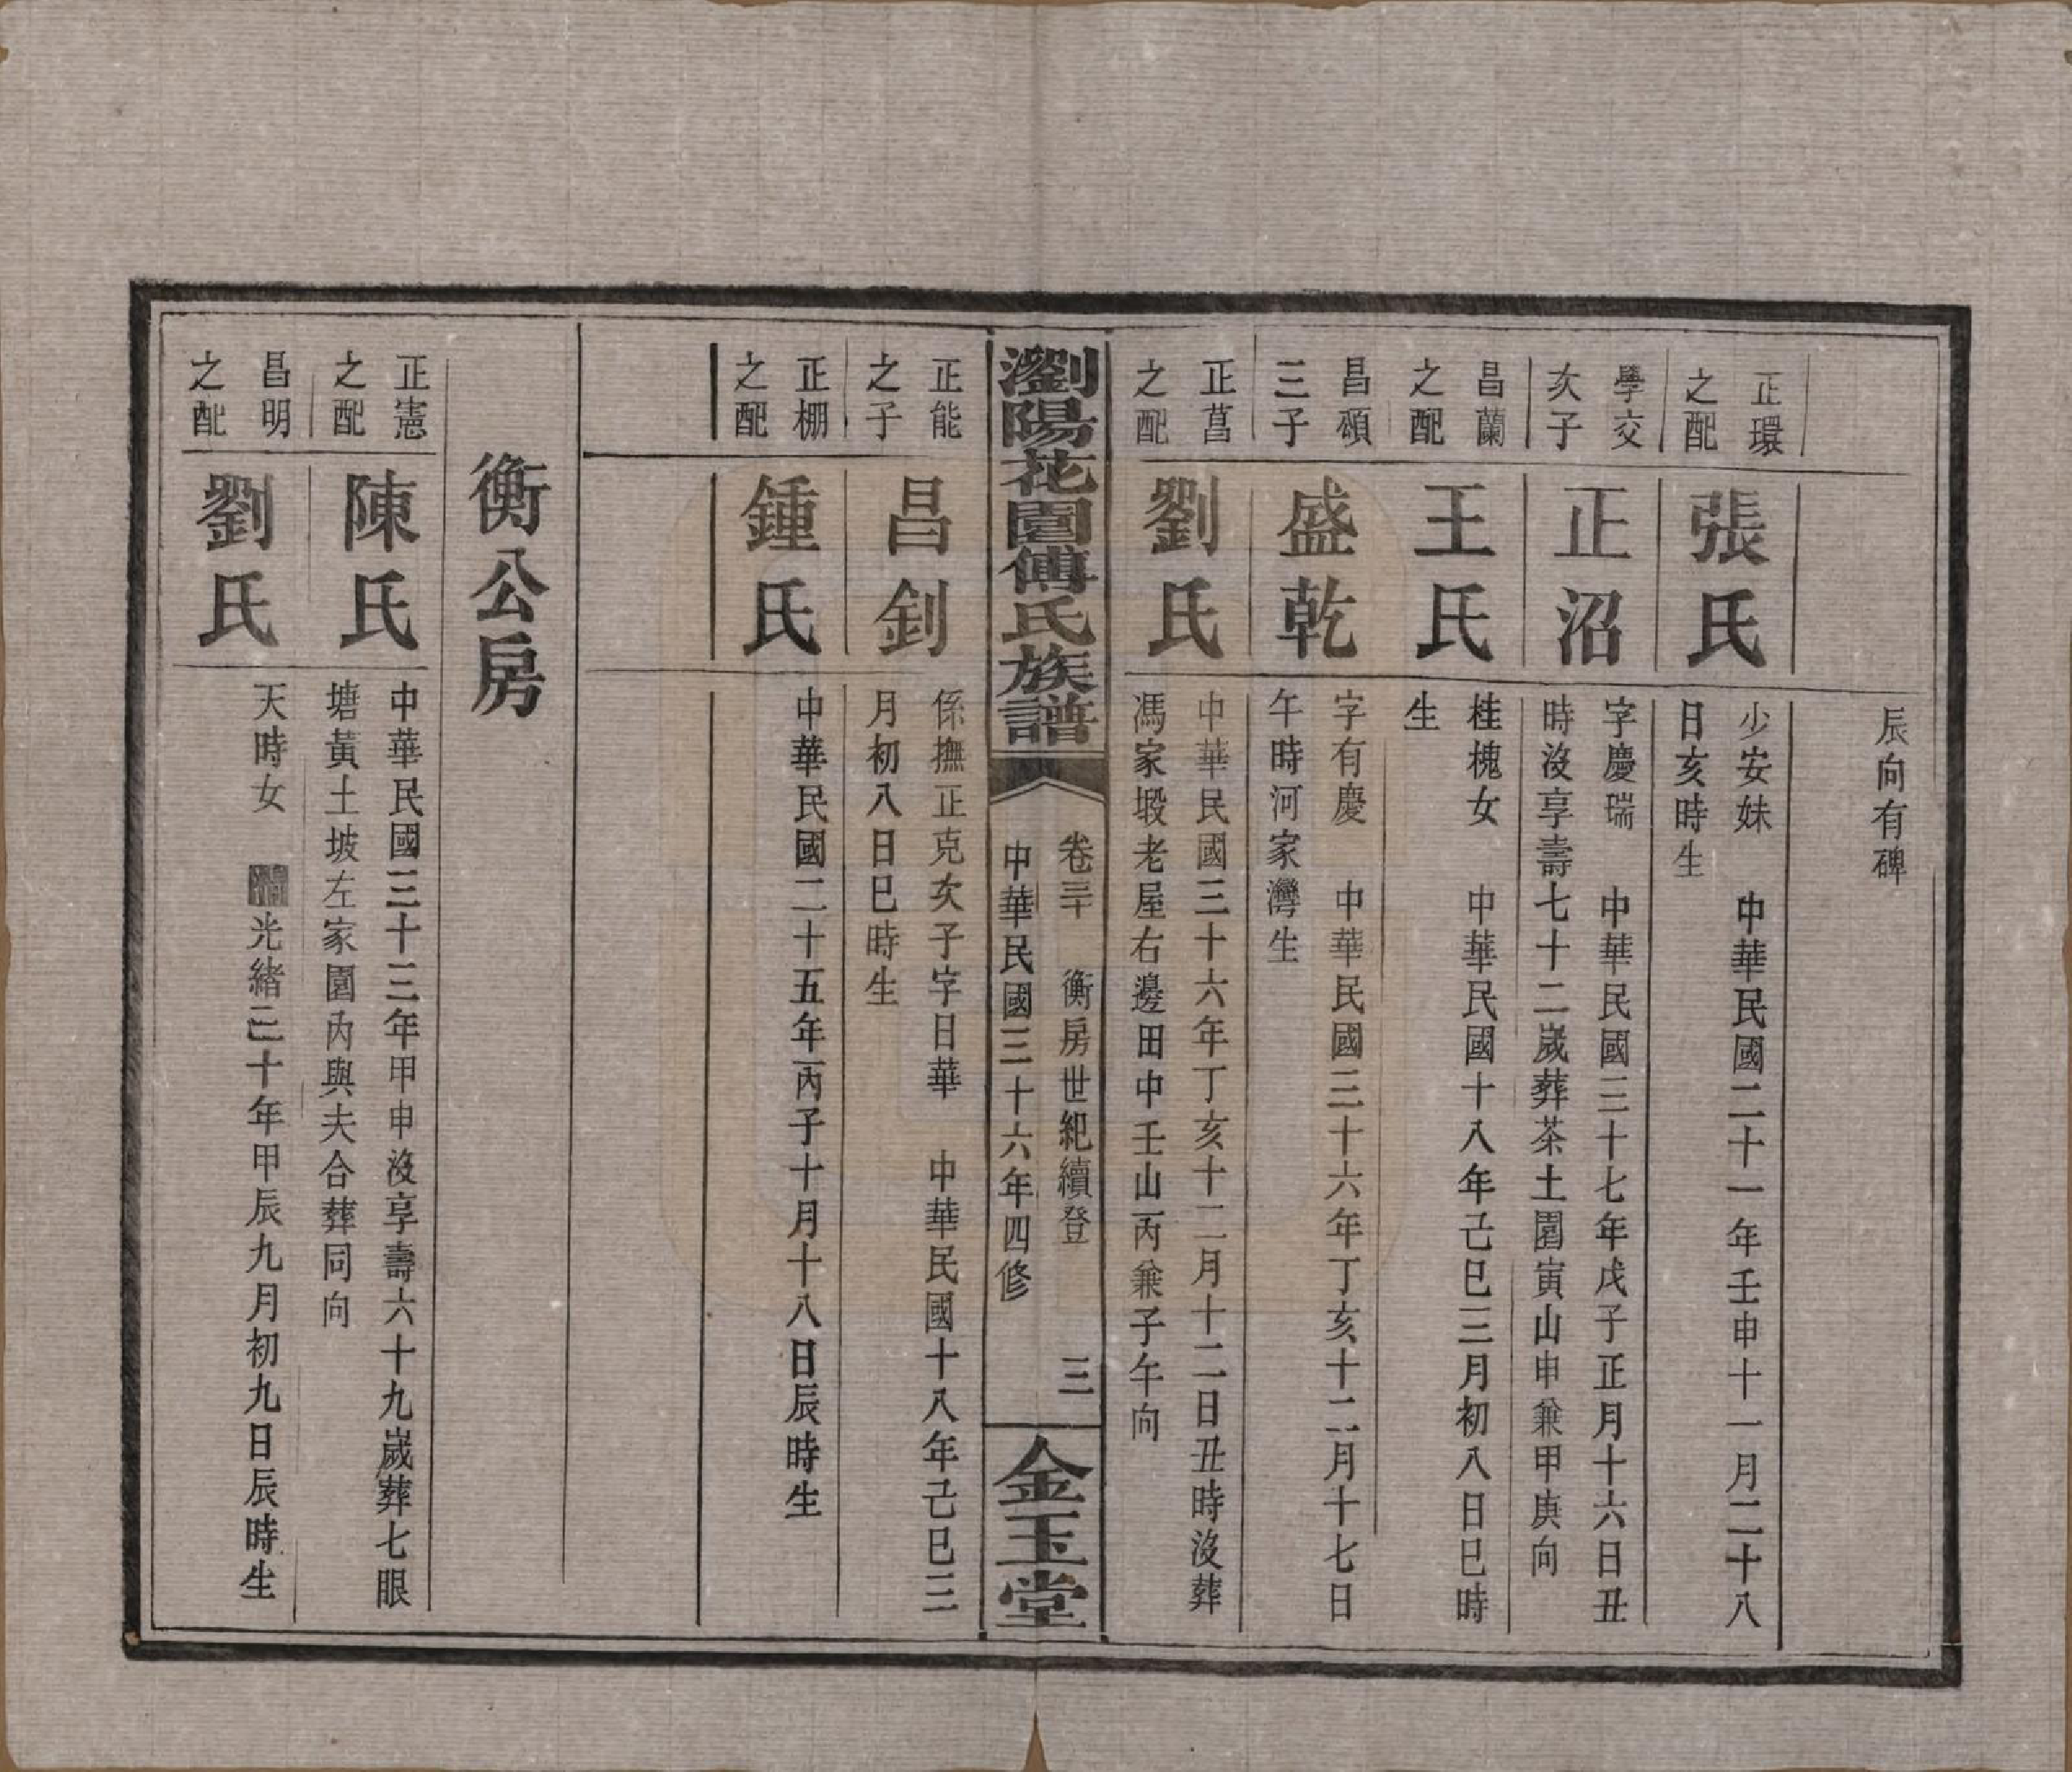 辰向有碑
正環
之配
張氏
少安妹　中華民國二十一年壬申十一月二十八
日亥時生
學交
次子
正沼
字慶瑞　中華民國三十七年戊子正月十六日丑
時沒享壽七十二歲葬茶土園寅山申兼甲庚向
昌蘭
之配
王氏
桂槐女　中華民國十八年己巳三月初八日巳時
生
昌碩
三子
盛乾
字有慶　中華民國三十六年丁亥十二月十七日
午時河家灣生
正菖
之配
劉氏
中華民國三十六年丁亥十二月十二日丑時沒葬
馮家塅老屋右邊田中壬山丙兼子午向
瀏陽花園傅氏族譜
卷三十　衡房世紀續登　三
中華民國三十六年四修
金玉堂
正能
之子
昌釗
係撫正克次子字日華　中華民國十八年己巳三
月初八日巳時生
正棚
之配
鍾氏
中華民國二十五年丙子十月十八日辰時生
衡公房
正憲
之配
陳氏
中華民國三十三年甲申沒享壽六十九歲葬七眼
塘黃土坡左家園內與夫合葬同向
昌明
之配
劉氏
天時女　光緒三十年甲辰九月初九日辰時生